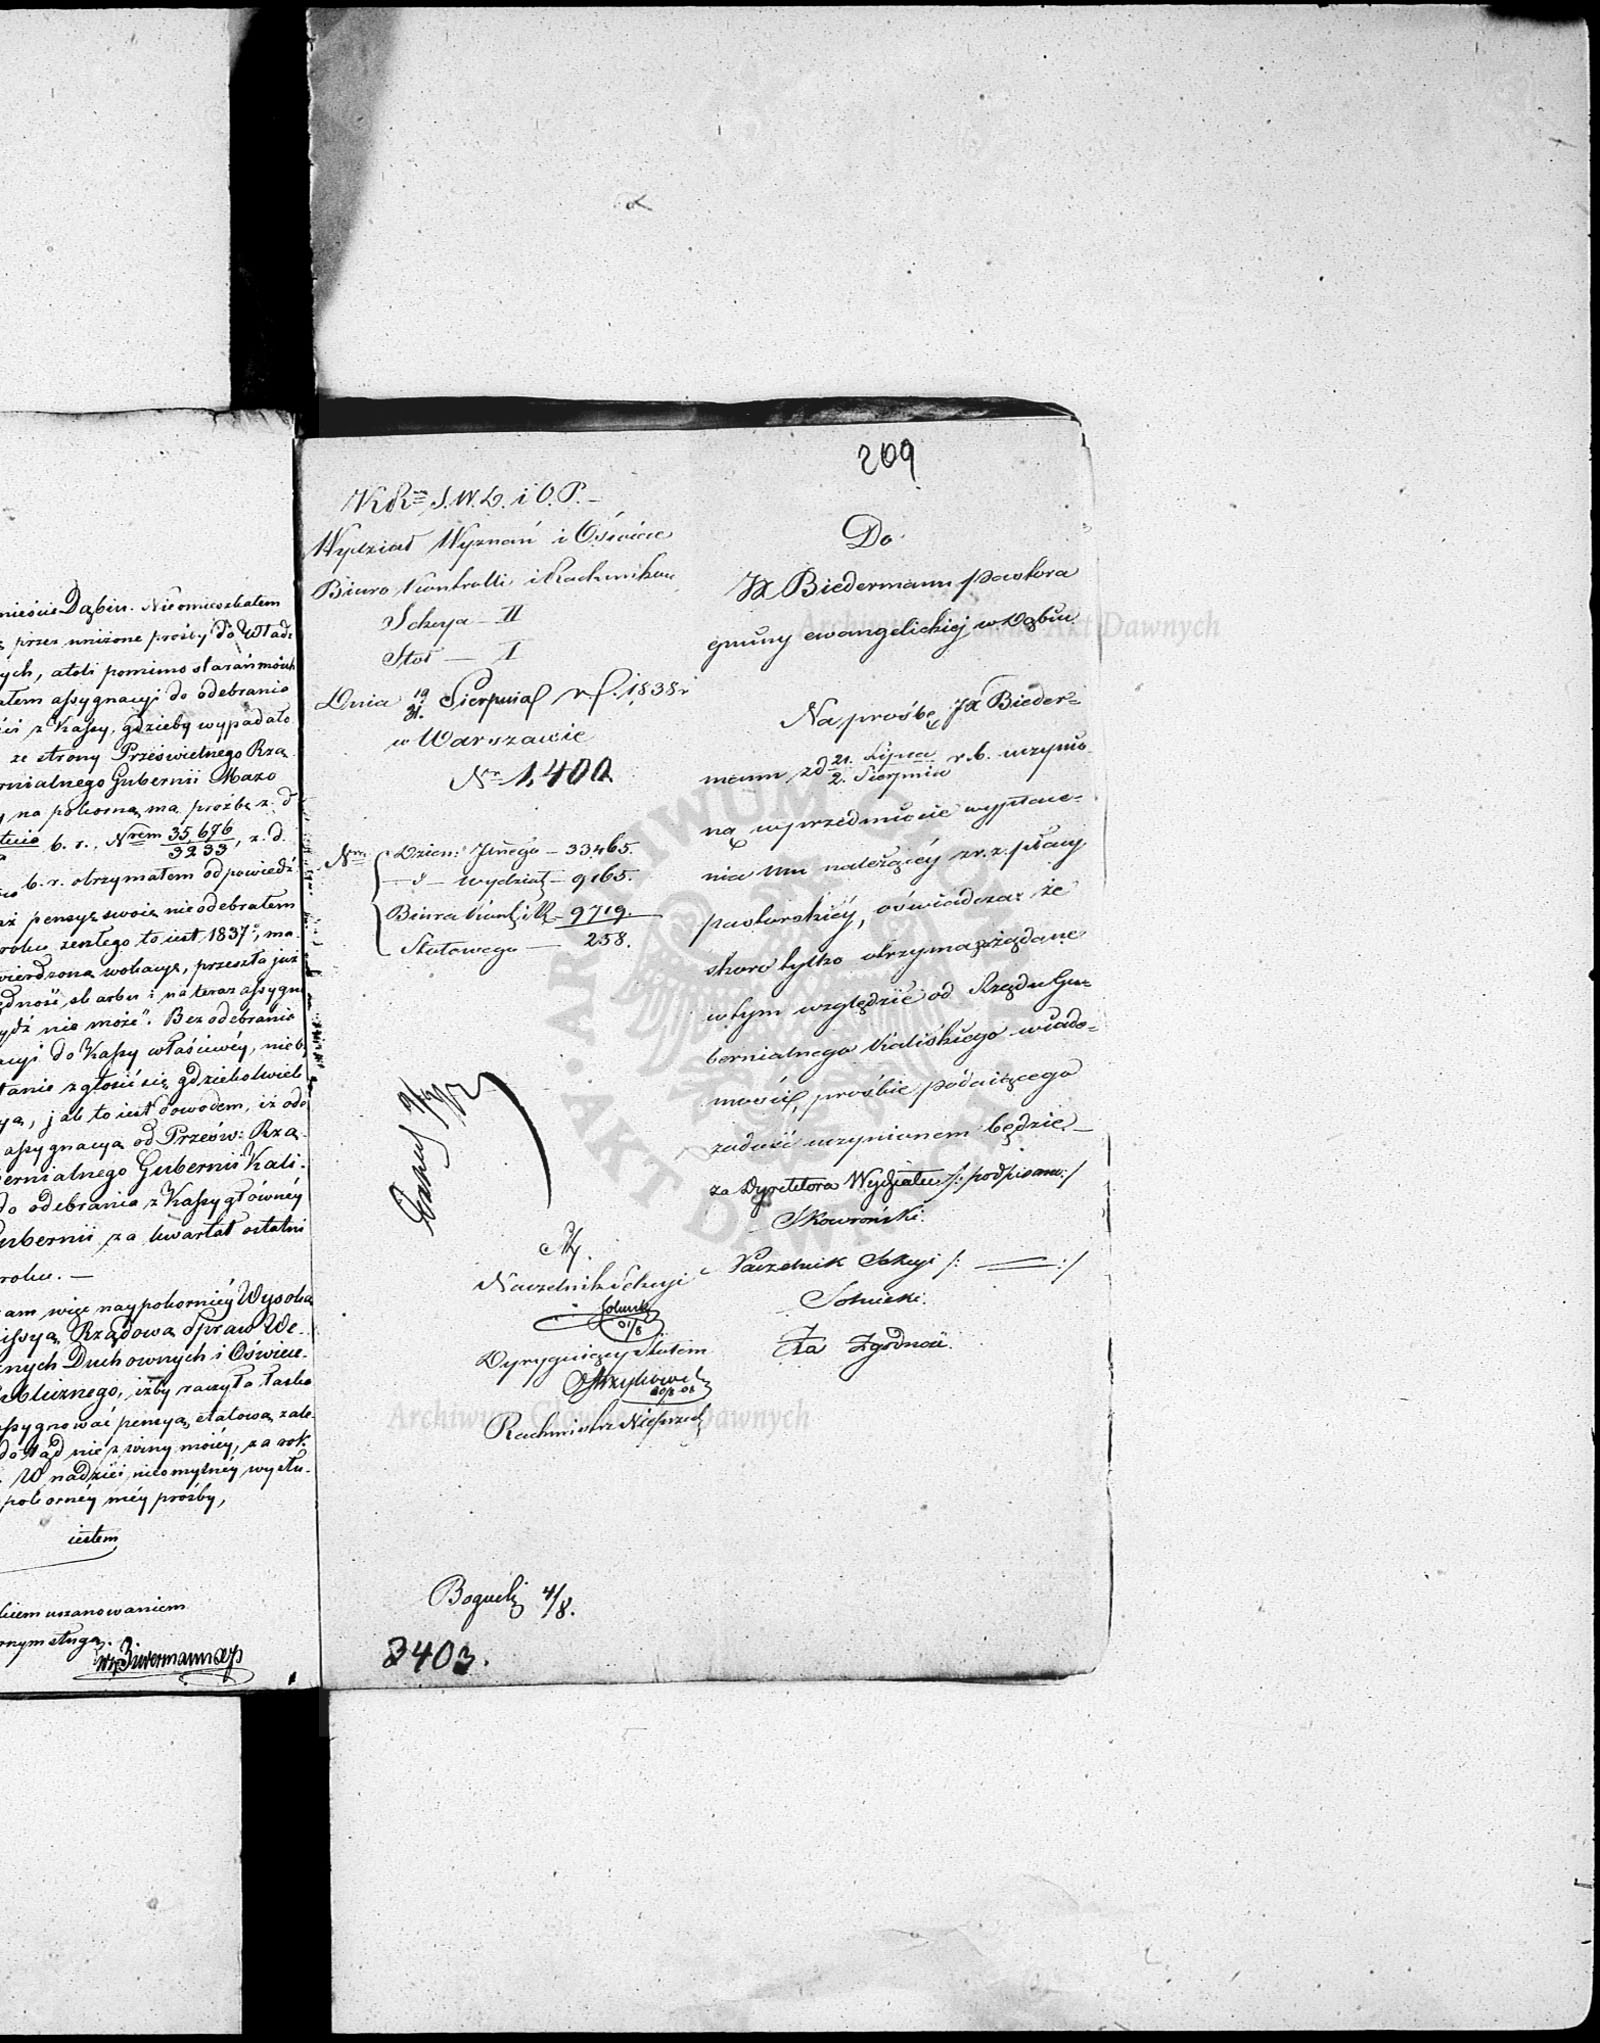 mieście Dąbiu. Nieomieszkałem
przez uniżone prośby do Władz
ych, atoli pomimo starań moich
ałem assygnacyi do odebrania
ści z Kassy, gdzieby wypadało
ze strony Prześwietnego Rzą
rnialnego Gubernii Mazo
na pokorną mą prożbę z. d
b. r., Nrem 35,676/3233, z. d.
b. r. otrzymałem odpowiedź
aż pensyę swoię nieodebrałem
roku zeszłego to iest 1837º, ma
wierdzoną wokacyę, przeszła już
ędność skarbu i na teraz assygn
ydź nie może". Bez odebrania
acyi do Kassy właściwey, nieb
stanie zgłosić się gdziekolwiek
ya, jak to iest dowodem, iż ode
assygnacyą od Prześw: Rzą-
ernialnego Gubernii Kali-
do odebrania z Kassy głównéy
ubernii za kwartał ostatni
roku. —
am więc naypokorniéy Wysoką
issyą Rządową Spraw We-
nych Duchownych i Oświece-
ublicznego, iżby raczyła łaska
assygnować pensyą etatową zale-
dotąd nie z winy moiéy, za rok
W nadziei nieomylnéy wysłu-
pokornéy méy prośby,
iestem
kiem uszanowaniem
rnym sługą.
209
KRn S. W. D. i O. P. —
Wydział Wyznań i Oświece
Biuro Kontrolli i Rachunkow
Sekcya — II
Stoł — I
Dnia 19/31. Sierpnia r. 1838 r
w Warszawie
Nr 1,400
Nra
Dzien: Głnego — 33465.
— d — Wydział — 9165.
Biura Kont. i R. — 9719.
Stołowego — 258.
Do
JX Biedermann Pastora
gminy ewangelickiej w Dąbiu
Na prośbę JX Bieder-
mann zd 21. Lipca/2. Sierpnia r. b. uczynio-
ną w przedmiocie wypłace-
nia mu należącéy z r. z. płacy
pastorskiéy, oświadcza że
skoro tylko otrzyma żądane
w tym względzie od Rządu Gu-
bernialnego Kaliskiego wiado-
mości, prośbie podaiącego
zadość uczynionem będzie —
za Dyrektora Wydziału /: podpisano :/
Skowroński.
Naczelnik Sekcyi /: — :/
Solnicki.
Za Zgodność
Naczelnik Sekcyi
Solnicki
31/8
Dyrygujący Stołem
30/8 08
Rachmistrz
Archiwum Główne Akt Dawnych
Archiwum Główne Akt Dawnych
ARCHIWUM GŁÓWNE AKT DAWNYCH
4/8.
8403.